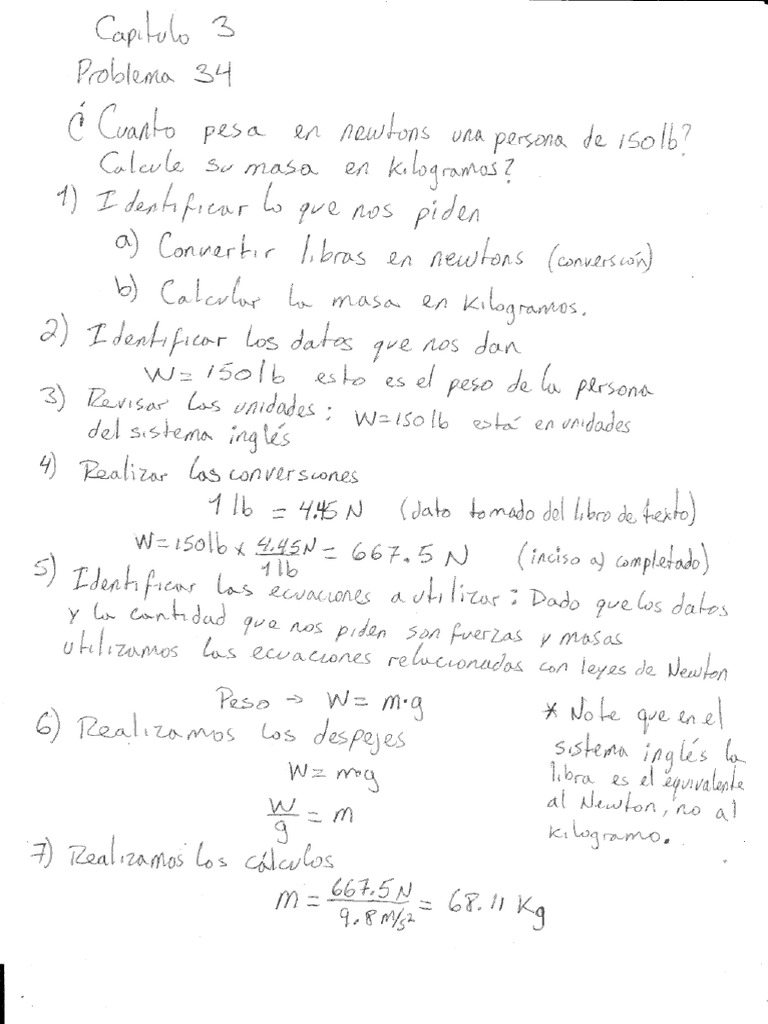 Capitulo 3
Problema 34
¿Cuanto pesa en newtons una persona de 150lb?
Calcule su masa en kilogramos?
1) Identificar lo que nos piden
a) Convertir libras en newtons (conversión)
b) Calcular la masa en kilogramos.
2) Identificar los datos que nos dan
W = 150lb esto es el peso de la persona
3) Revisar las unidades: W=150lb está en unidades
del sistema inglés
4) Realizar las conversiones
1 lb = 4.45 N (dato tomado del libro de texto)
W=150lb x 4.45N/1lb = 667.5 N (inciso a) completado)
5) Identificar las ecuaciones a utilizar: Dado que los datos
y la cantidad que nos piden son fuerzas y masas
utilizamos las ecuaciones relacionadas con leyes de Newton
Peso → W= m·g
6) Realizamos los despejes
W= m·g
W/g = m
* Note que en el
sistema inglés la
libra es el equivalente
al Newton, no al
kilogramo.
7) Realizamos los cálculos
m = 667.5 N/9.8 m/s² = 68.11 Kg